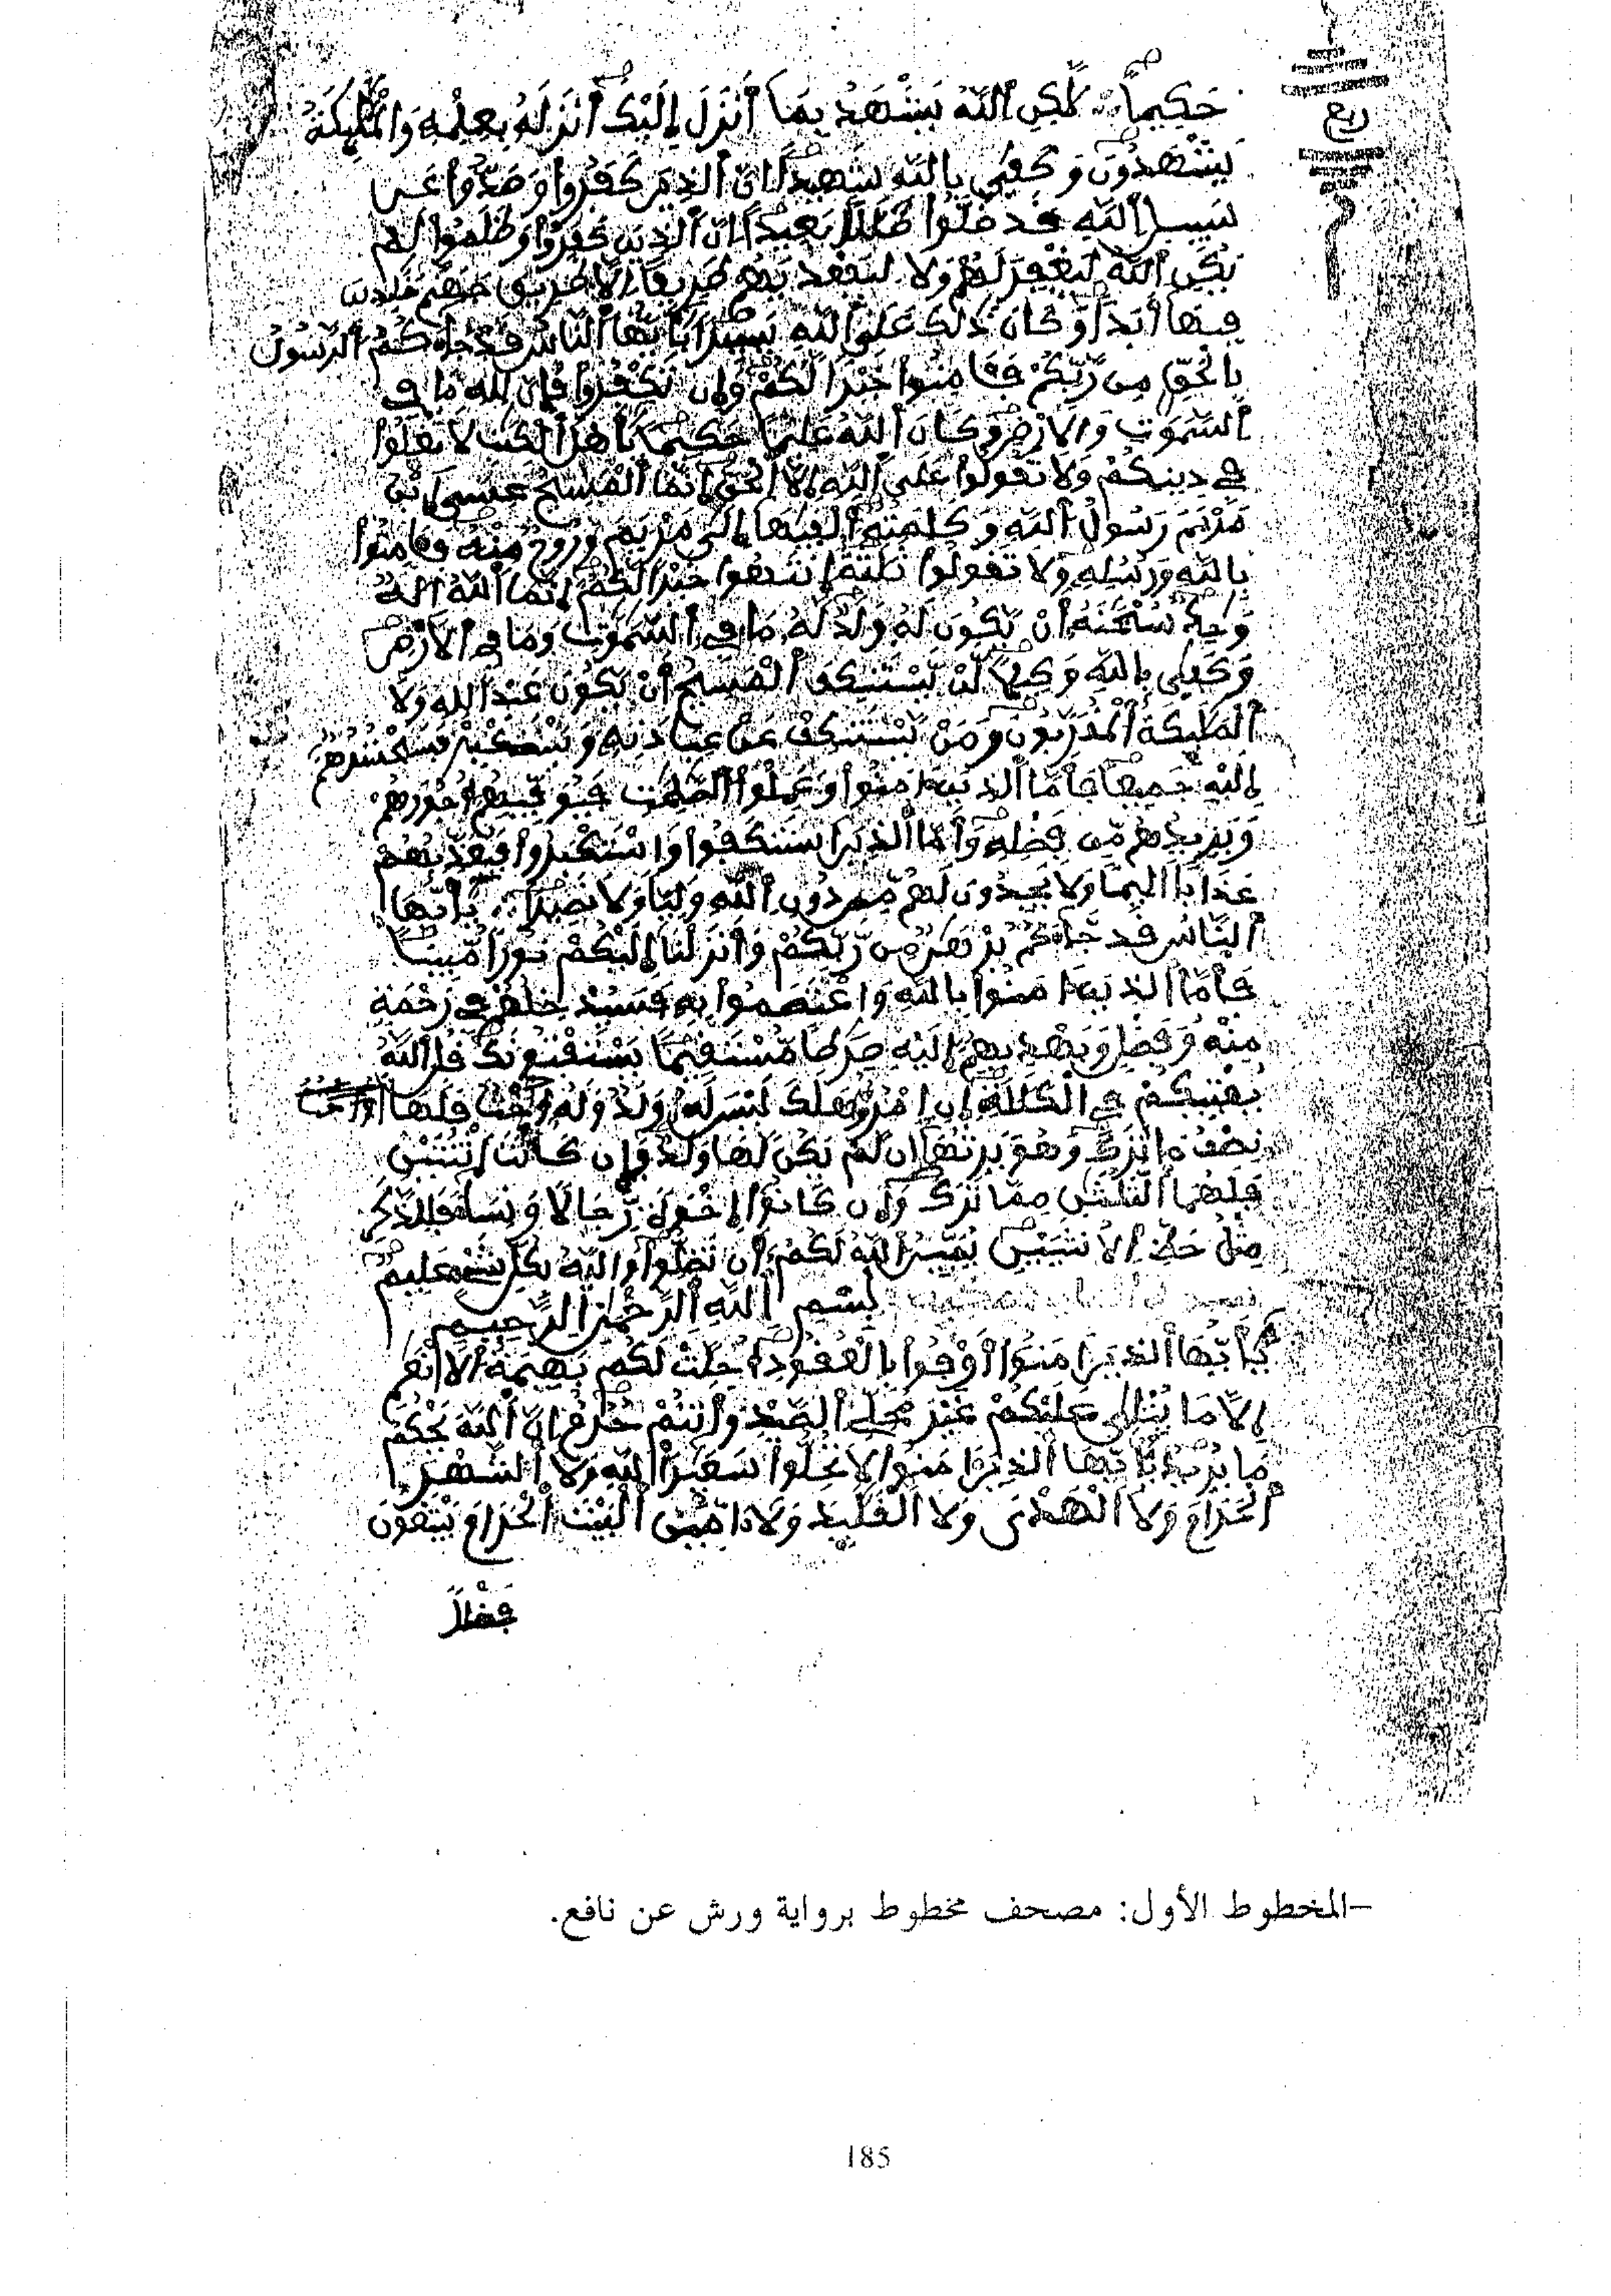 ربع
حَكِيماً لَّٰكِنِ اِ۬للَّهُ يَشْهَدُ بِمَا أَنزَلَ إِلَيْكَ أَنزَلَهُ بِعِلْمِهِ وَالْمَلَٰئِكَةُ
يَشْهَدُونَ وَكَفِىٰ بِاللَّهِ شَهِيداً اِنَّ اَ۬لذِينَ كَفَرُوا وَصَدُّوا عَن
سَبِيلِ اِ۬للَّهِ قَد ضَّلُّوا ضَلَٰلاً بَعِيداً اِنَّ اَ۬لذِينَ كَفَرُوا وَظَلَمُوا لَمْ
يَكُنِ اِ۬للَّهُ لِيَغْفِرَ لَهُمْ وَلَا لِيَهْدِيَهُمْ طَرِيقاً اِلَّا طَرِيقَ جَهَنَّمَ خَٰلِدِينَ
فِيهَا أَبَداً وَكَانَ ذَٰلِكَ عَلَى اَ۬للَّهِ يَسِيراً يَٰأَيُّهَا اَ۬لنَّاسُ قَدْ جَاءَكُمُ اُ۬لرَّسُولُ
بِالْحَقِّ مِن رَّبِّكُمْ فَـَٔامِنُوا خَيْراً لَّكُمْ وَإِن تَكْفُرُوا فَإِنَّ لِلهِ مَا فِى
اِ۬لسَّمَٰوَٰتِ وَالَارْضِ وَكَانَ اَ۬للَّهُ عَلِيماً حَكِيماً يَٰأَهْلَ اَ۬لْكِتَٰبِ لَا تَغْلُوا
فِى دِينِكُمْ وَلَا تَقُولُوا عَلَى اَ۬للَّهِ إِلَّا اَ۬لْحَقَّ إِنَّمَا اَ۬لْمَسِيحُ عِيسَى اَ۪بْنُ
مَرْيَمَ رَسُولُ اُ۬للَّهِ وَكَلِمَتُهُ أَلْقِيٰهَا إِلَىٰ مَرْيَمَ وَرُوحٌ مِّنْهُ فَـَٔامِنُوا
بِاللَّهِ وَرُسُلِهِ وَلَا تَقُولُوا ثَلَٰثَةٌ اِنتَهُوا خَيْراً لَّكُمْ إِنَّمَا اَ۬للَّهُ إِلَٰهٌ
وَٰحِدٌ سُبْحَٰنَهُ أَنْ يَّكُونَ لَهُ وَلَدٌ لَّهُ مَا فِى اِ۬لسَّمَٰوَٰتِ وَمَا فِى اِ۬لَارْضِ
وَكَفِىٰ بِاللَّهِ وَكِيلاً لَّنْ يَّسْتَنكِفَ اَ۬لْمَسِيحُ أَنْ يَّكُونَ عَبْداً لِلهِ وَلَا
اَ۬لْمَلَٰئِكَةُ اُ۬لْمُقَرَّبُونَ وَمَنْ يَّسْتَنكِفْ عَنْ عِبَادَتِهِ وَيَسْتَكْبِرْ فَسَيَحْشُرُهُمْ
إِلَيْهِ جَمِيعاً فَأَمَّا اَ۬لذِينَ ءَامَنُوا وَعَمِلُوا اُ۬لصَّٰلِحَٰتِ فَيُوَفِّيهِمْ أُجُورَهُمْ
وَيَزِيدُهُم مِّن فَضْلِهِ وَأَمَّا اَ۬لذِينَ اَ۪سْتَنكَفُوا وَاسْتَكْبَرُوا فَيُعَذِّبُهُمْ
عَذَاباً اَلِيماً وَلَا يَجِدُونَ لَهُم مِّن دُونِ اِ۬للَّهِ وَلِيّاً وَلَا نَصِيراً يَٰأَيُّهَا
اَ۬لنَّاسُ قَدْ جَاءَكُم بُرْهَٰنٌ مِّن رَّبِّكُمْ وَأَنزَلْنَا إِلَيْكُمْ نُوراً مُّبِيناً
فَأَمَّا اَ۬لذِينَ ءَامَنُوا بِاللَّهِ وَاعْتَصَمُوا بِهِ فَسَيُدْخِلُهُمْ فِى رَحْمَةٍ
مِّنْهُ وَفَضْلٍ وَيَهْدِيهِمْ إِلَيْهِ صِرَٰطاً مُّسْتَقِيماً يَسْتَفْتُونَكَ قُلِ اِ۬للَّهُ
يُفْتِيكُمْ فِى اِ۬لْكَلَٰلَةِ إِنِ اِ۪مْرُؤٌاْ هَلَكَ لَيْسَ لَهُ وَلَدٌ وَلَهُ أُخْتٌ فَلَهَا
نِصْفُ مَا تَرَكَ وَهُوَ يَرِثُهَا إِن لَّمْ يَكُن لَّهَا وَلَدٌ فَإِن كَانَتَا اَ۪ثْنَتَيْنِ
فَلَهُمَا اَ۬لثُّلُثَٰنِ مِمَّا تَرَكَ وَإِن كَانُوا إِخْوَةً رِّجَالاً وَنِسَاءً فَلِلذَّكَرِ
مِثْلُ حَظِّ اِ۬لُانثَيَيْنِ يُبَيِّنُ اُ۬للَّهُ لَكُمْ أَن تَضِلُّوا وَاللَّهُ بِكُلِّ شَيْءٍ عَلِيمٌ
بِسْمِ اِ۬للَّهِ اِ۬لرَّحْمَٰنِ اِ۬لرَّحِيمِ
يَٰأَيُّهَا اَ۬لذِينَ ءَامَنُوا أَوْفُوا بِالْعُقُودِ أُحِلَّتْ لَكُم بَهِيمَةُ اُ۬لَانْعَٰمِ
إِلَّا مَا يُتْلَىٰ عَلَيْكُمْ غَيْرَ مُحِلِّى اِ۬لصَّيْدِ وَأَنتُمْ حُرُمٌ اِنَّ اَ۬للَّهَ يَحْكُمُ
مَا يُرِيدُ يَٰأَيُّهَا اَ۬لذِينَ ءَامَنُوا لَا تُحِلُّوا شَعَٰئِرَ اَ۬للَّهِ وَلَا اَ۬لشَّهْرَ
اَ۬لْحَرَامَ وَلَا اَ۬لْهَدْىَ وَلَا اَ۬لْقَلَٰئِدَ وَلَا ءَامِّينَ اَ۬لْبَيْتَ اَ۬لْحَرَامَ يَبْتَغُونَ
فَضْلاً
–المخطوط الأول: مصحف مخطوط برواية ورش عن نافع.
185